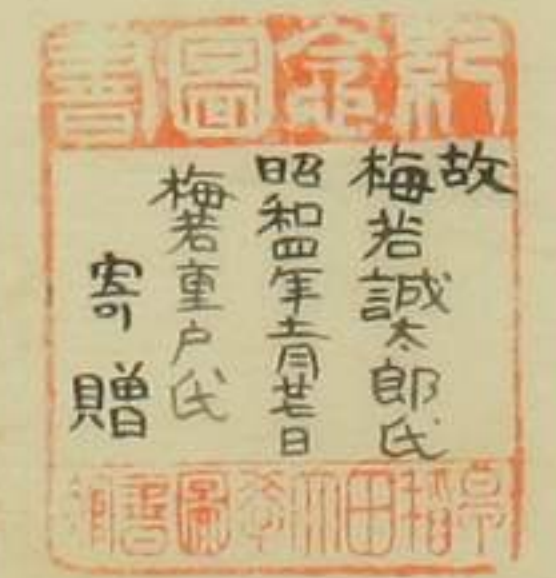 紀念圖書
故
梅若誠太郎氏
昭和四年十一月廿七日
梅若重戸氏
寄贈
早稻田大學圖書館